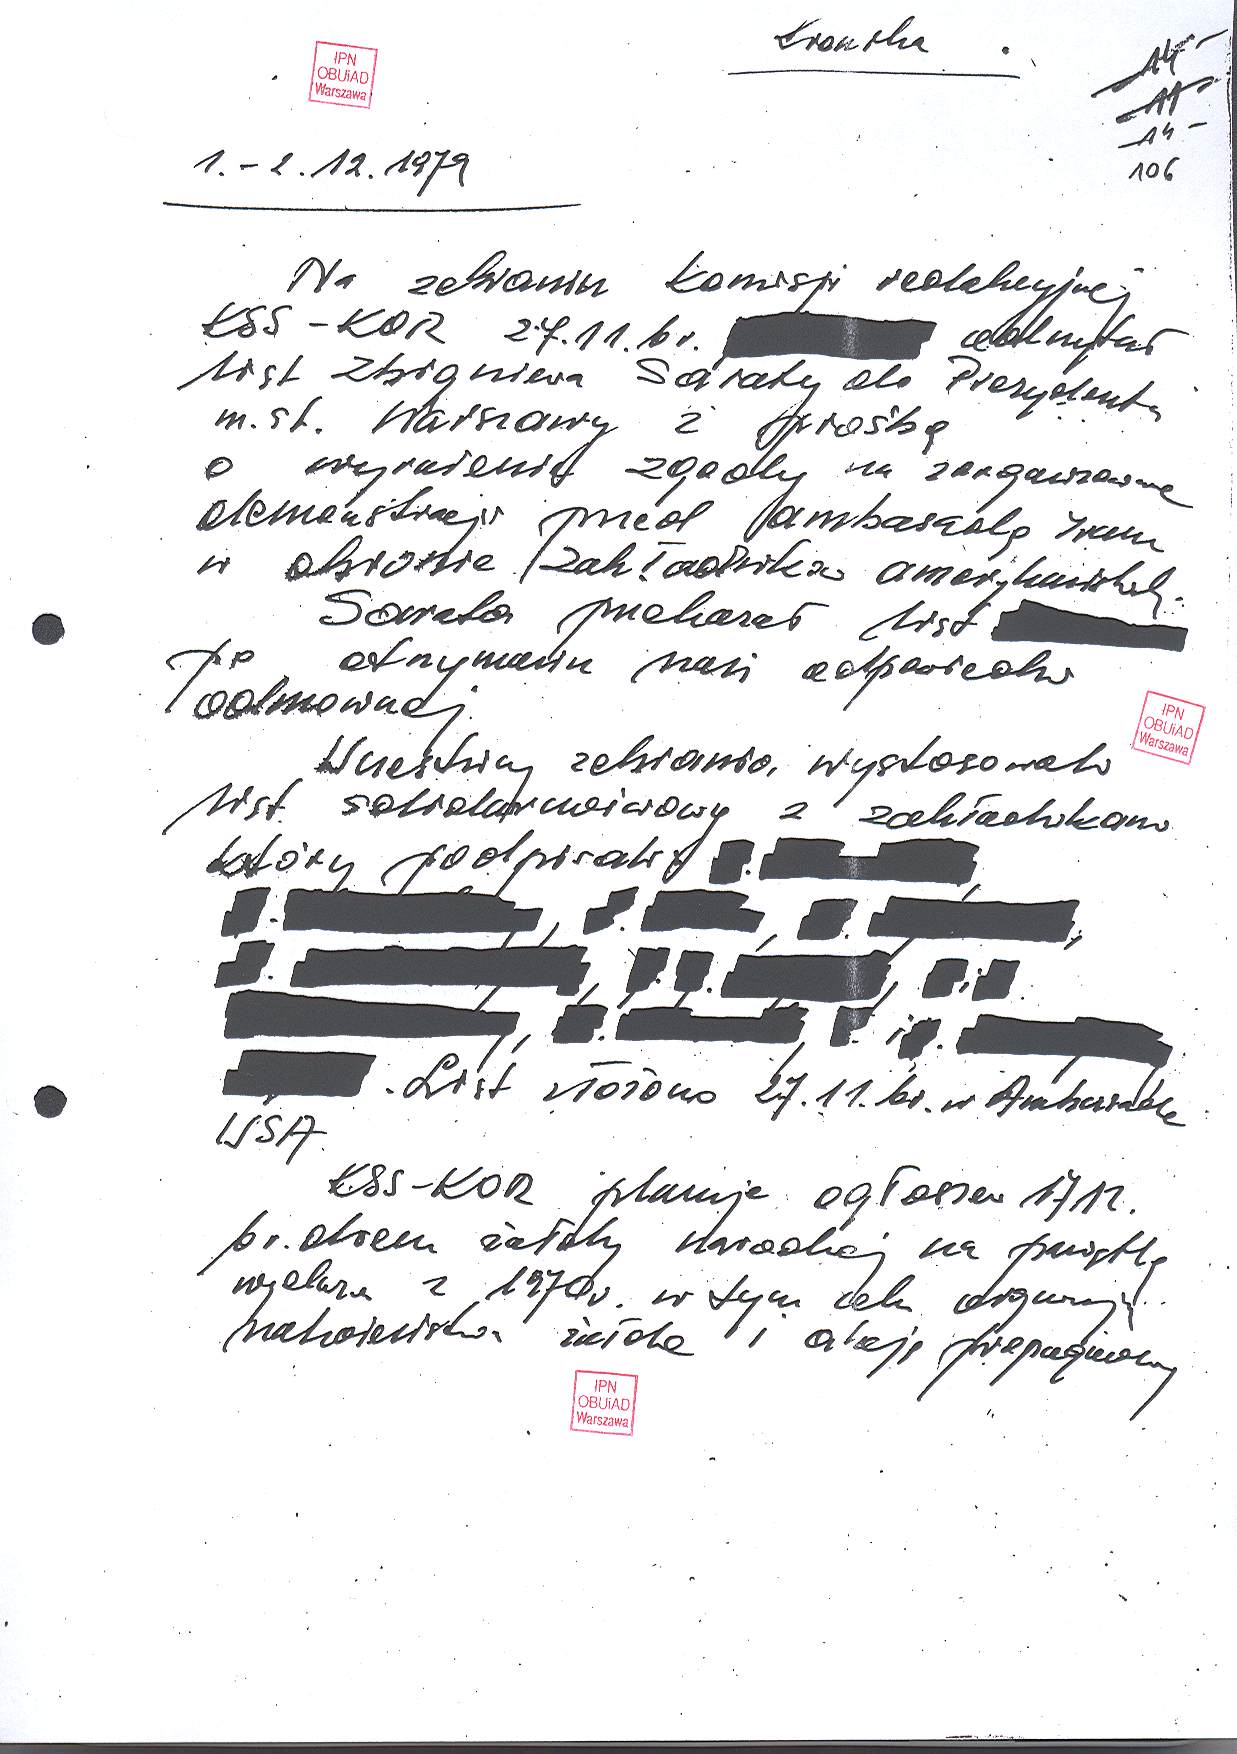 Kronika
IPN
OBUiAD
Warszawa
14
11
14
106
1.-2.12.1979
Na zebraniu Komisji redakcyjnej
KSS-KOR 27.11.br. odczytał
list Zbigniewa Saraty do Prezydenta
m.st. Warszawy z prośbą
o wyrażenie zgody na zorganizowanie
demonstracji przed ambasadą Iranu
w obronie zakładników amerykańskich.
Sarata przekazał list
po otrzymaniu odpowiedzi
odmownej.
IPN
OBUiAD
Warszawa
Uczestnicy zebrania wystosowali
list solidarnościowy z zakładnikami
który podpisali
. List złożono 27.11.br. w Ambasadzie
USA.
KSS-KOR planuje ogłosić 17 12.
br. dniem żałoby narodowej na pamiątkę
wydarzeń z 1970r. w tym celu organizują
nabożeństwa żałobne i akcję propagandową
IPN
OBUiAD
Warszawa